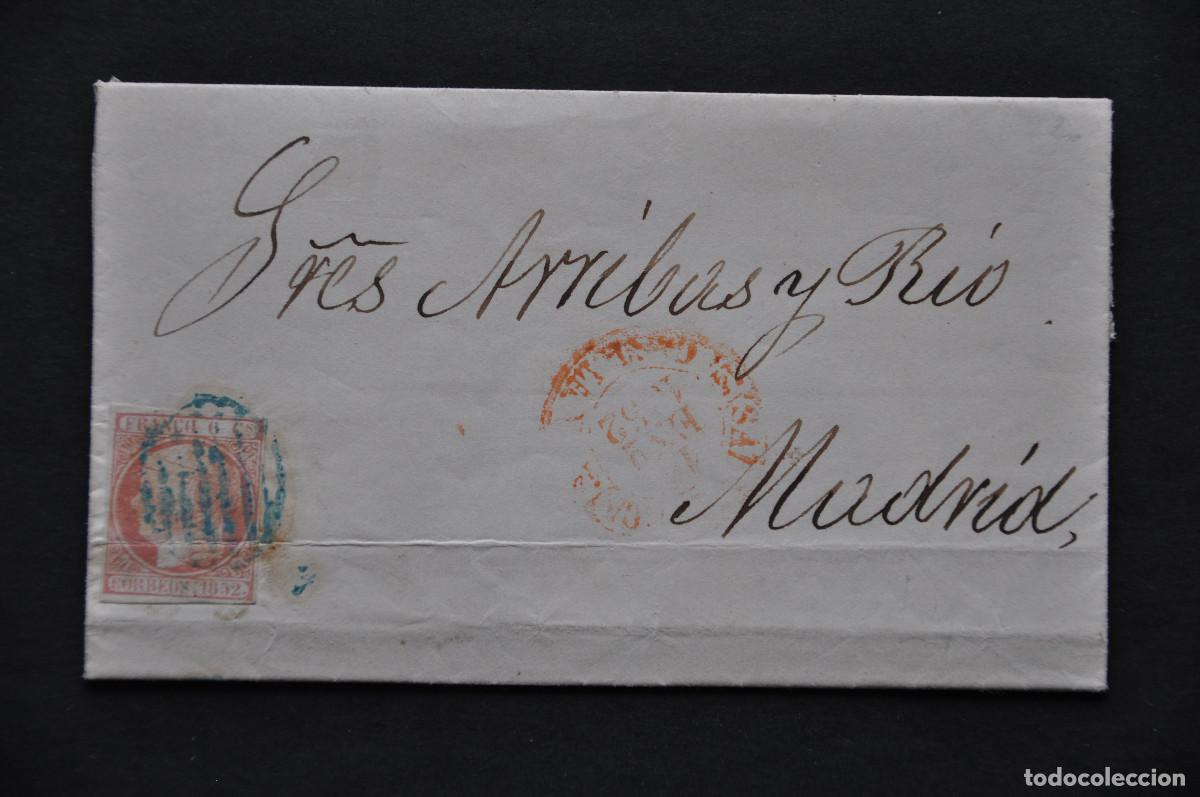 Sres Arribas y Rio
Madrid,
FRANCO 6 Cs
CORREOS. 1852.
todocoleccion